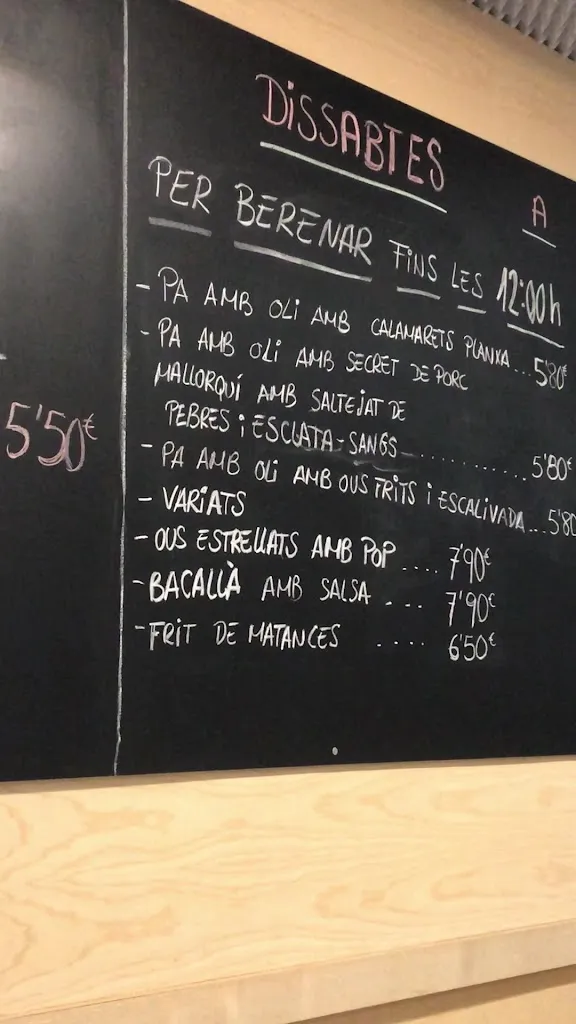 DiSSABTES
A
PER BERENAR FiNS LES 12:00h
- PA AMB OLi AMB CALAMARETS PLANXA...5'80€
- PA AMB OLi AMB SECRET DE PORC
MALLORQUÍ AMB SALTEJAT DE
PEBRES i ESCLATA-SANGS............5'80€
- PA AMB OLi AMB OUS FRITS i ESCALIVADA...5'80
- VARiATS
- OUS ESTRELLATS AMB POP .... 7'90€
- BACALLÀ AMB SALSA .... 7'90€
- FRiT DE MATANCES .... 6'50€
5'50€